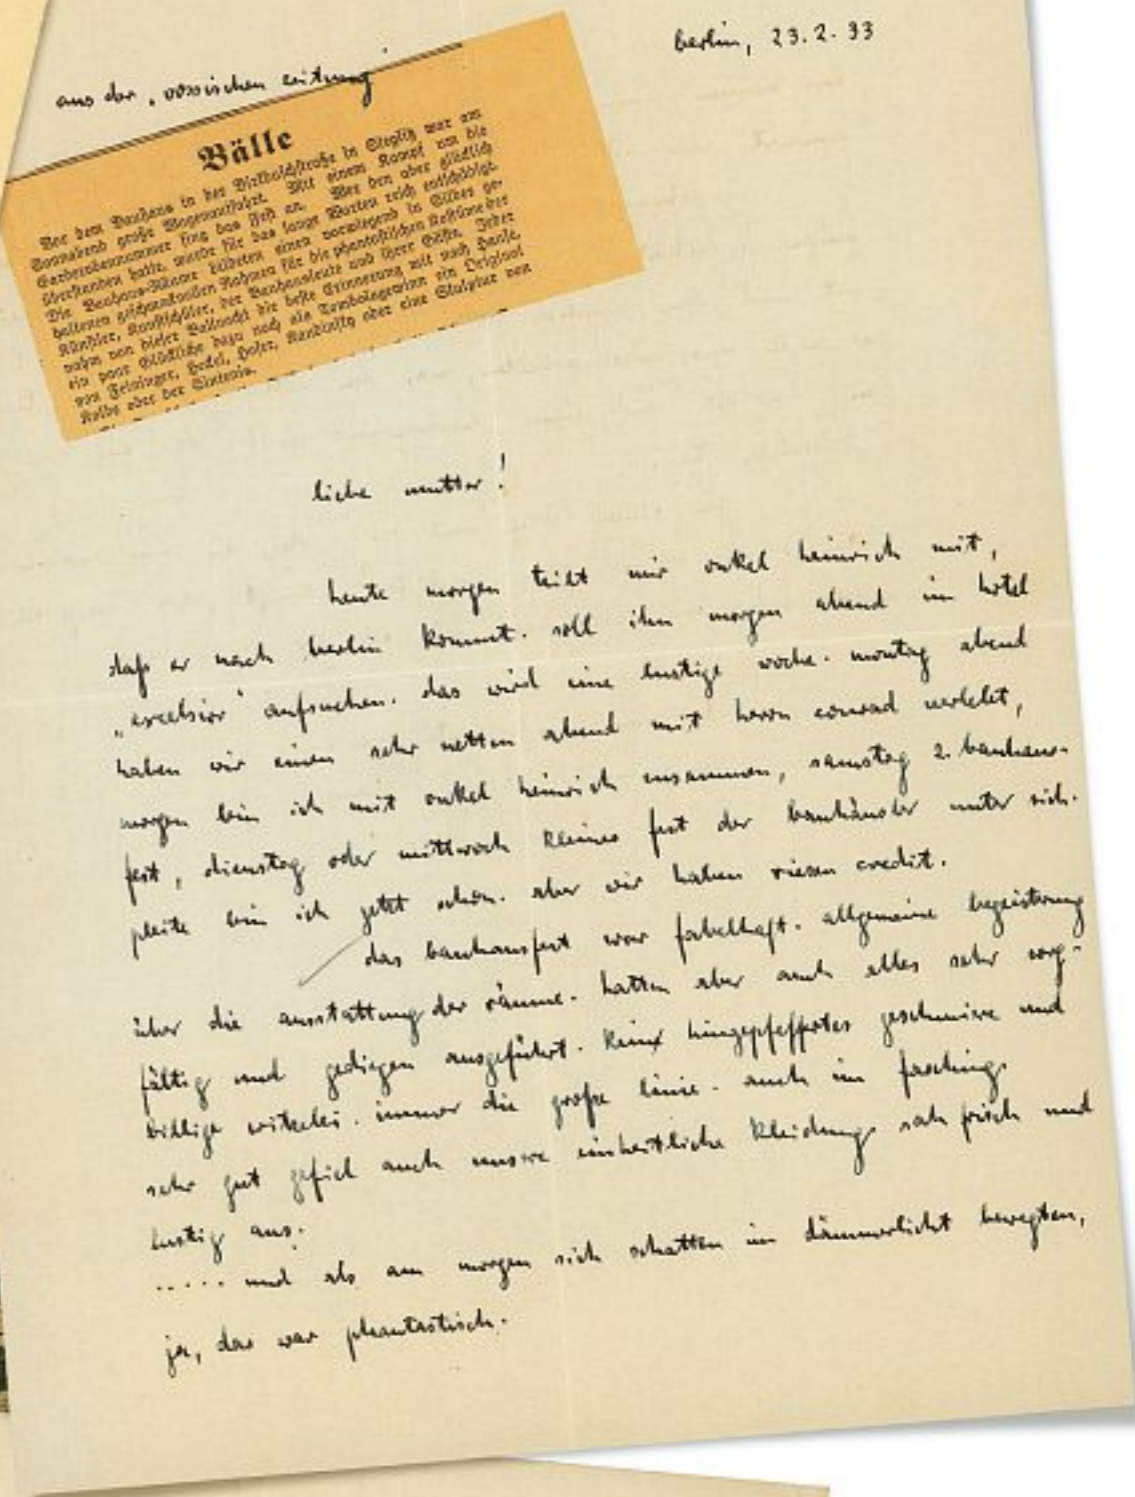 berlin, 23.2.33
aus der „vossischen zeitung"
Bälle
Vor dem Bauhaus in der Birkbuschstraße in Steglitz war am
Sonnabend große Wagenauffahrt. Mit einem Kampf um die
Garderobennummer fing das Fest an. Wer den aber glücklich
überstanden hatte, wurde für das lange Warten reich entschädigt.
Die Bauhaus-Räume bildeten einen vorwiegend in Silber ge-
haltenen geschmackvollen Rahmen für die phantastischen Kostüme der
Künstler, Kunstschüler, der Bauhausleute und ihrer Gäste. Jeder
nahm von dieser Ballnacht die beste Erinnerung mit nach Hause,
ein paar Glückliche dazu noch als Tombolagewinn ein Original
von Feininger, Heckel, Hofer, Kandinsky oder eine Skulptur von
Kolbe oder der Sintenis.
liebe mutter!
heute morgen teilt mir onkel heinrich mit,
daß er nach berlin kommt. soll ihn morgen abend im hotel
„excelsior" aufsuchen. das wird eine lustige woche. montag abend
haben wir einen sehr netten abend mit herrn conrad verlebt,
morgen bin ich mit onkel heinrich zusammen, samstag 2. bauhaus-
fest, dienstag oder mittwoch kleines fest der bauhäusler unter sich.
pleite bin ich jetzt schon. aber wir haben riesen credit.
das bauhausfest war fabelhaft. allgemeine begeisterung
über die ausstattung der räume. hatten aber auch alles sehr sorg-
fältig und gediegen ausgeführt. kein hingepfeffertes geschmiere und
billige witzelei. immer die große linie. auch im fasching.
sehr gut gefiel auch unsere einheitliche kleidung. sah frisch und
lustig aus.
..... und als am morgen sich schatten im dämmerlicht bewegten,
ja, das war phantastisch.